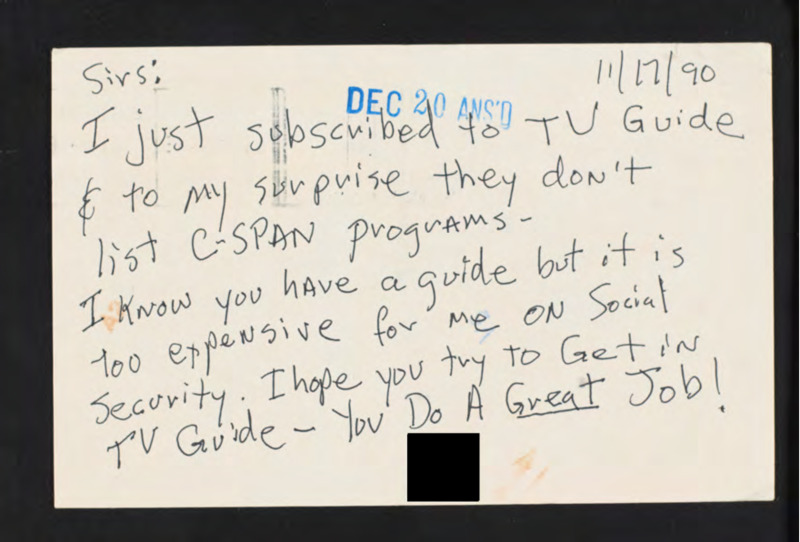 Sirs:
11/17/90
DEC 20 ANS'D
I just subscribed to TV Guide
& to my surprise they don't
list C-SPAN programs-
I know you have a guide but it is
too expensive for me on Social
Security. I hope you try to Get in
TV Guide - You Do A Great Job!